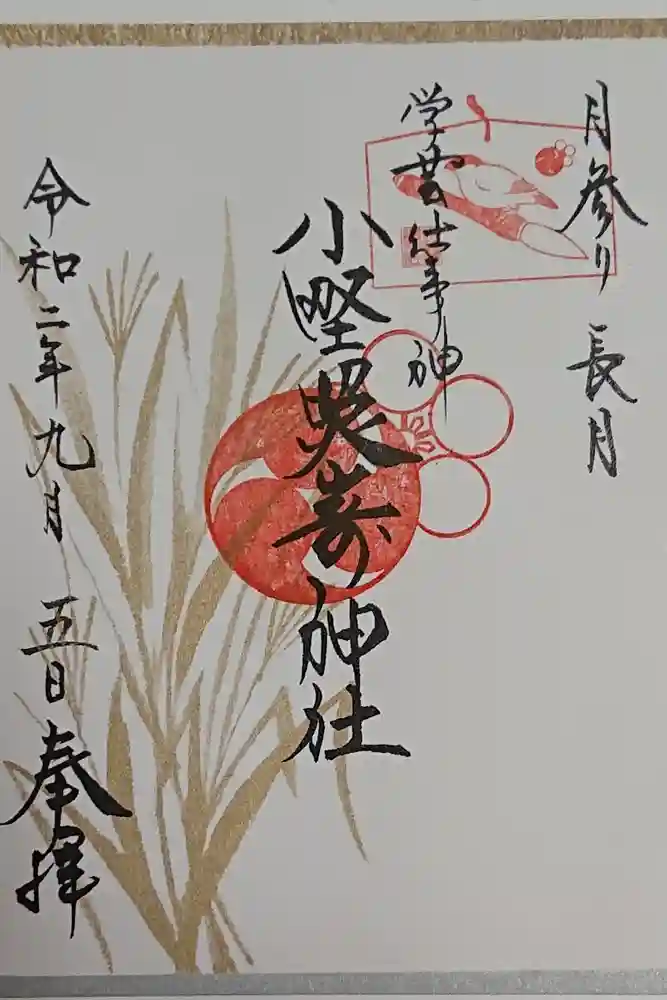 月参り 長月
学芸仕事神
小野照嵜神社
令和二年九月 五日 奉拝